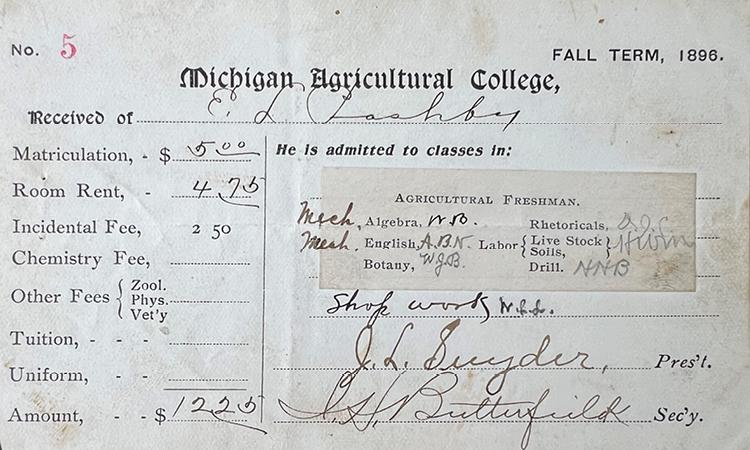 No. 5
FALL TERM, 1896.
Michigan Agricultural College,
Received of E. L. Pashby
Matriculation, - $ 5.00
Room Rent, - 4.75
Incidental Fee, 2 50
Chemistry Fee,
Other Fees { Zool. Phys. Vet'y
Tuition, - - -
Uniform, - -
Amount, - - $ 12 25
He is admitted to classes in:
AGRICULTURAL FRESHMAN.
Mech. Algebra, W.B. Rhetoricals,
Mech. English, A.B.N. Labor { Live Stock Soils, }
Botany, W.J.B. Drill. HNB
Shop work
J. L. Snyder, Pres't.
I. H. Butterfield Sec'y.